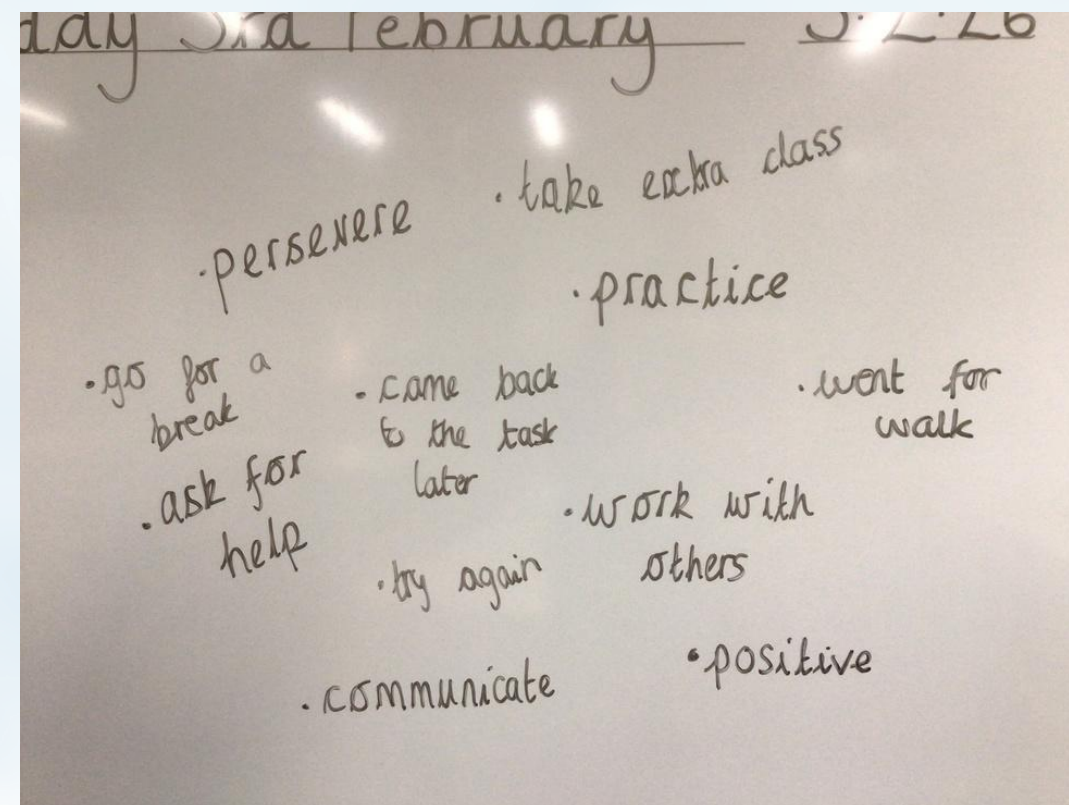 day 3rd February 3.2.26
· persevere
· take extra class
· practice
· go for a
break
· came back
to the task
later
· went for
walk
· ask for
help
· work with
others
· try again
· communicate
· positive